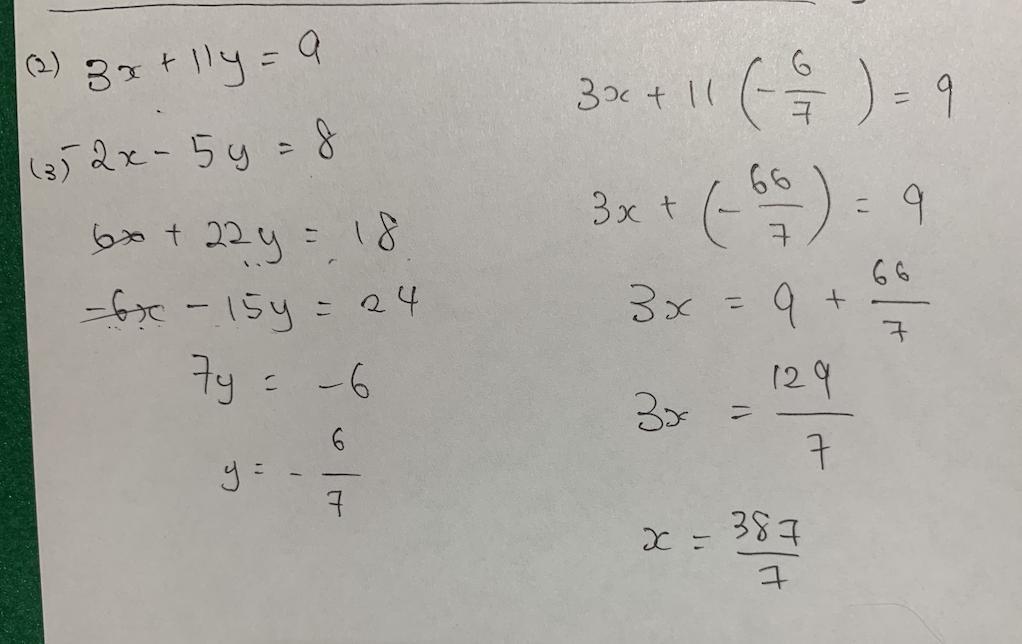 (2) 3x + 11y = 9
(3) -2x - 5y = 8
6x + 22y = 18
-6x - 15y = 24
7y = -6
y = - 6/7
3x + 11 (- 6/7) = 9
3x + (- 66/7) = 9
3x = 9 + 66/7
3x = 129/7
x = 387/7